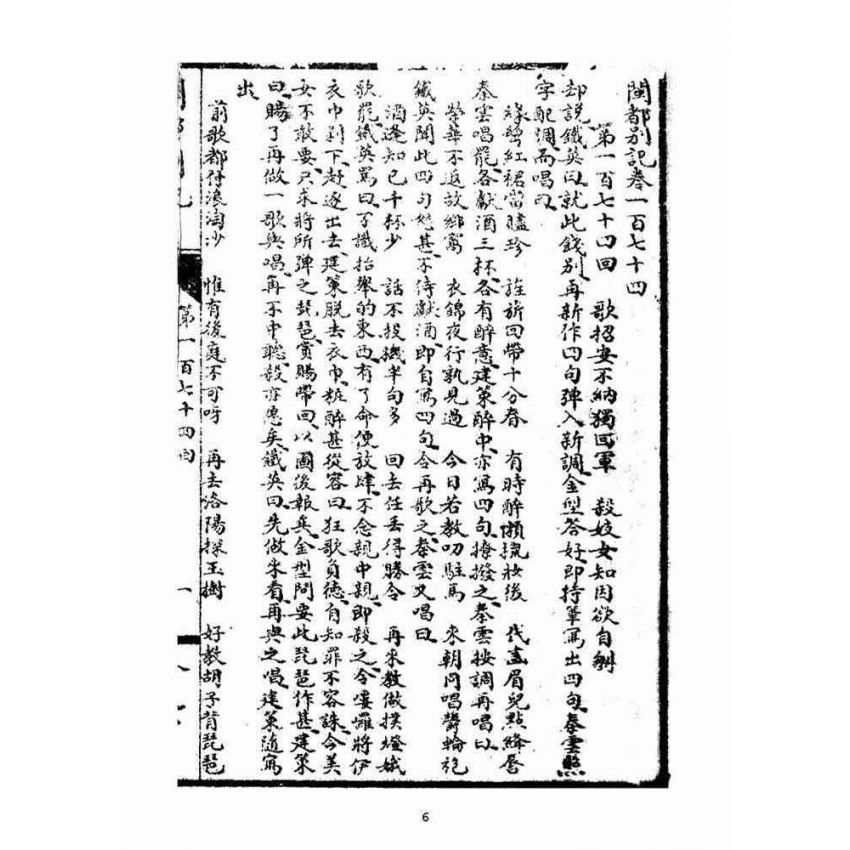 閩都別記卷一百七十四
第一百七十四回　歌招安不納獨回軍　殺妓女知因欲自刎
却說鐵英曰就此錢別再新作四句彈入新調金型答好即持筆寫出四句秦雲照
字配調高唱曰
紅裙當 　旌旂回帶十分春　有時醉懶梳妝後　代畫眉兒點絳唇
秦雲唱罷各獻酒三杯各有醉意建策醉中亦寫四句撩撥之秦雲按調再唱曰
榮華不返故鄉寓　衣錦夜行孰見過　今日若教叨駐馬　來朝同唱鬱輪袍
鐵英聞此四句　甚不待獻酒即自寫四句令再歌之秦雲又唱曰
酒逢知己千杯少　話不投機半句多　回去任丟得勝令　再來教做撲燈蛾
歌罷鐵英罵曰不識抬舉的東西有了命便放肆不念親中親即殺之令嘍囉將伊
衣巾剝下赶逐出去建策脫去衣巾粧醉甚從容曰狂歌負德自知罪不容誅今美
女不敢要只求將所彈之琵琶賞賜帶回以圖後報矣金型問要此琵琶作甚建策
曰賜了再做一歌與唱再不中聽殺亦應矣鐵英曰先做來看再與之唱建策隨寫
出
前歌都付浪淘沙　惟有後庭不可呀　再去洛陽探玉樹　好教胡子背琵琶
第一百七十四回
一
6